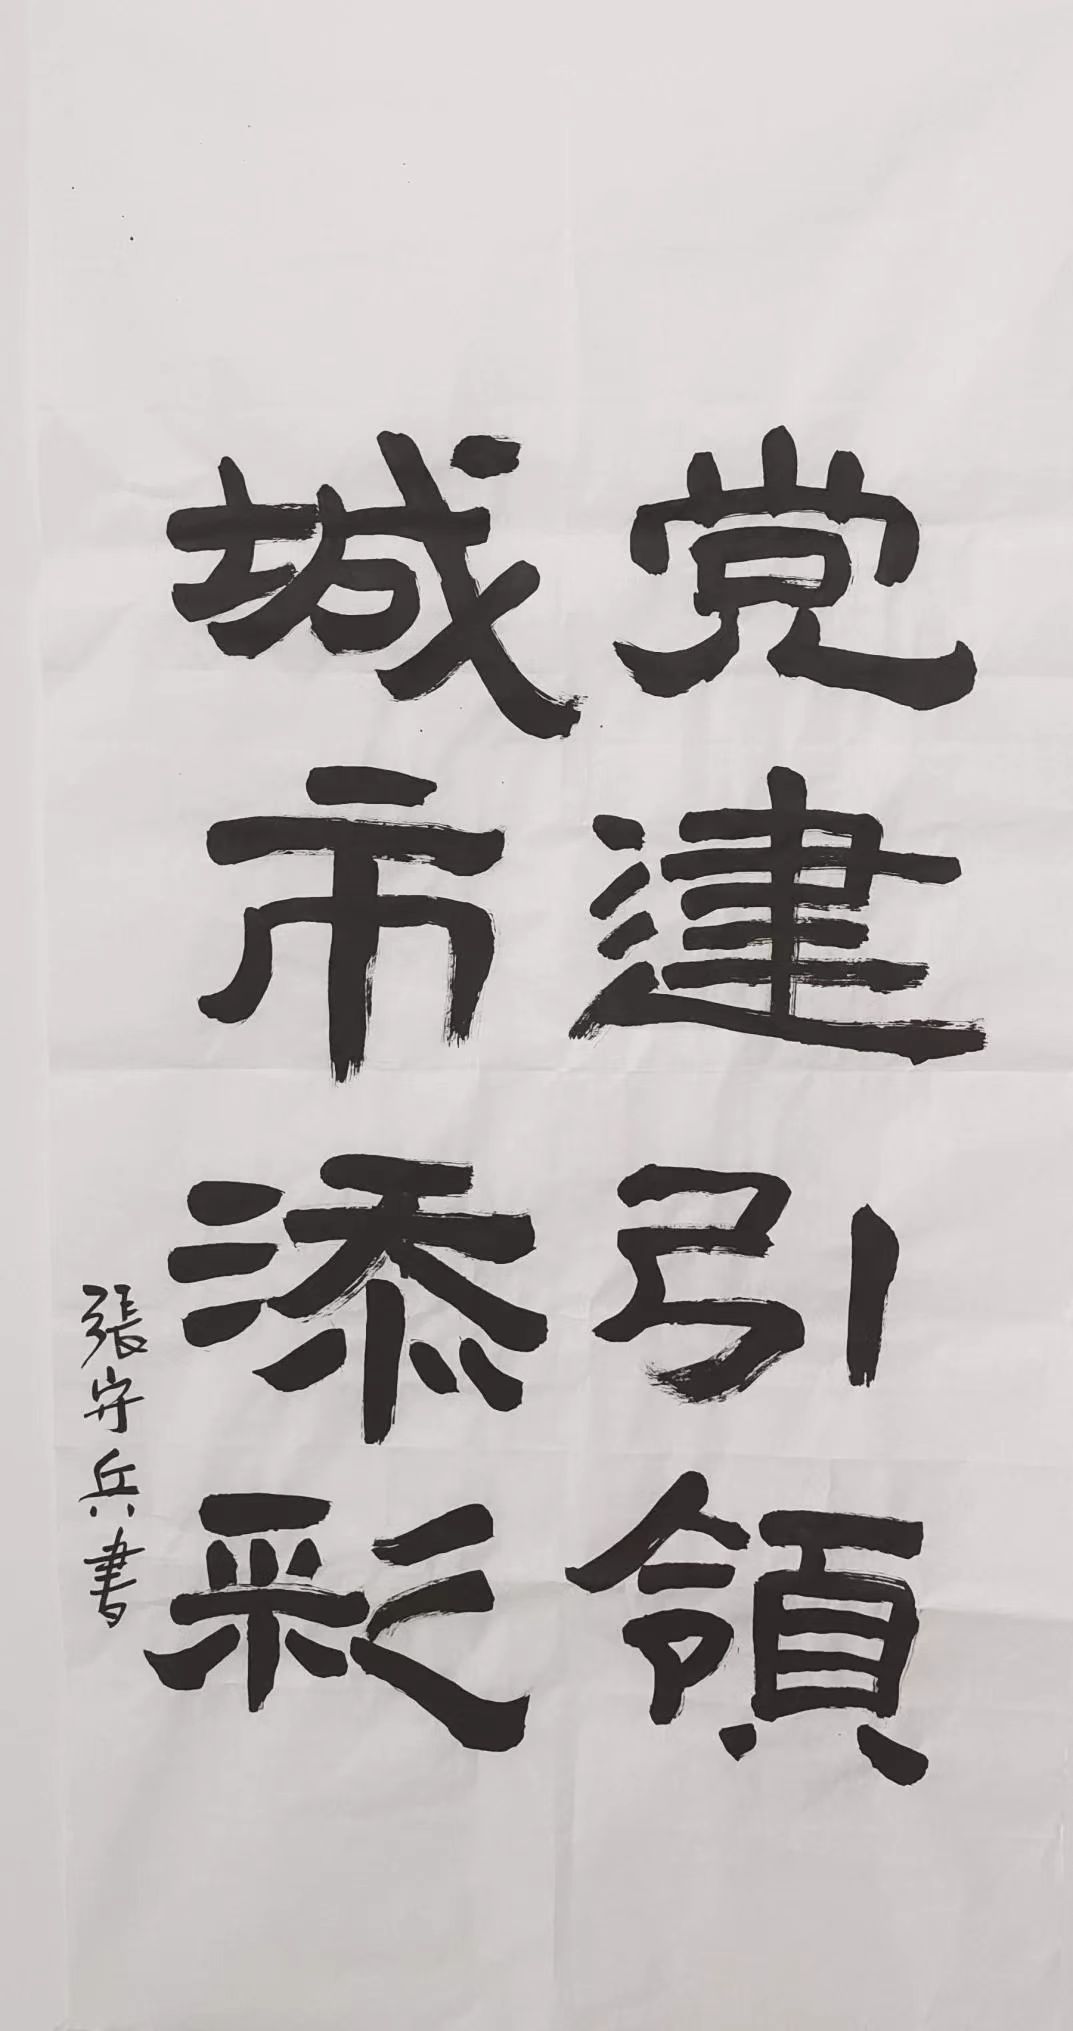 党建引領
城市添彩
張守兵書